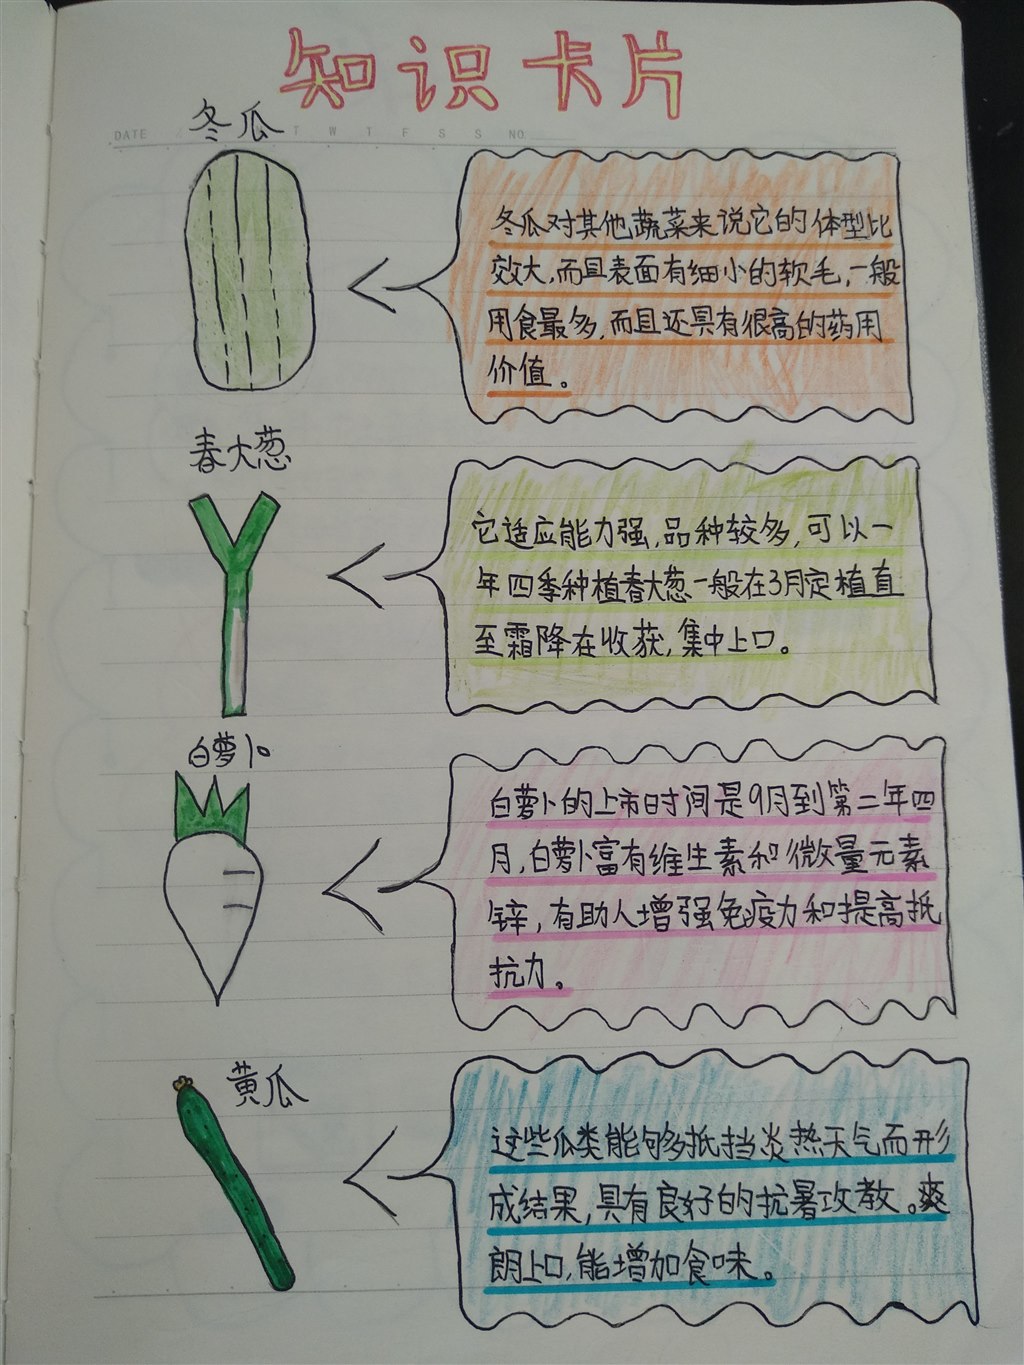 知识卡片
DATE T W T F S S NO
冬瓜
冬瓜对其他蔬菜来说它的体型比
效大,而且表面有细小的软毛,一般
用食最多,而且还具有很高的药用
价值。
春大葱
它适应能力强,品种较多,可以一
年四季种植春大葱一般在3月定植直
至霜降在收获,集中上口。
白萝卜
白萝卜的上市时间是9月到第二年四
月,白萝卜富有维生素和微量元素
锌,有助人增强免疫力和提高抵
抗力。
黄瓜
这些瓜类能够抵挡炎热天气而形
成结果,具有良好的抗暑攻教。爽
朗上口,能增加食味。